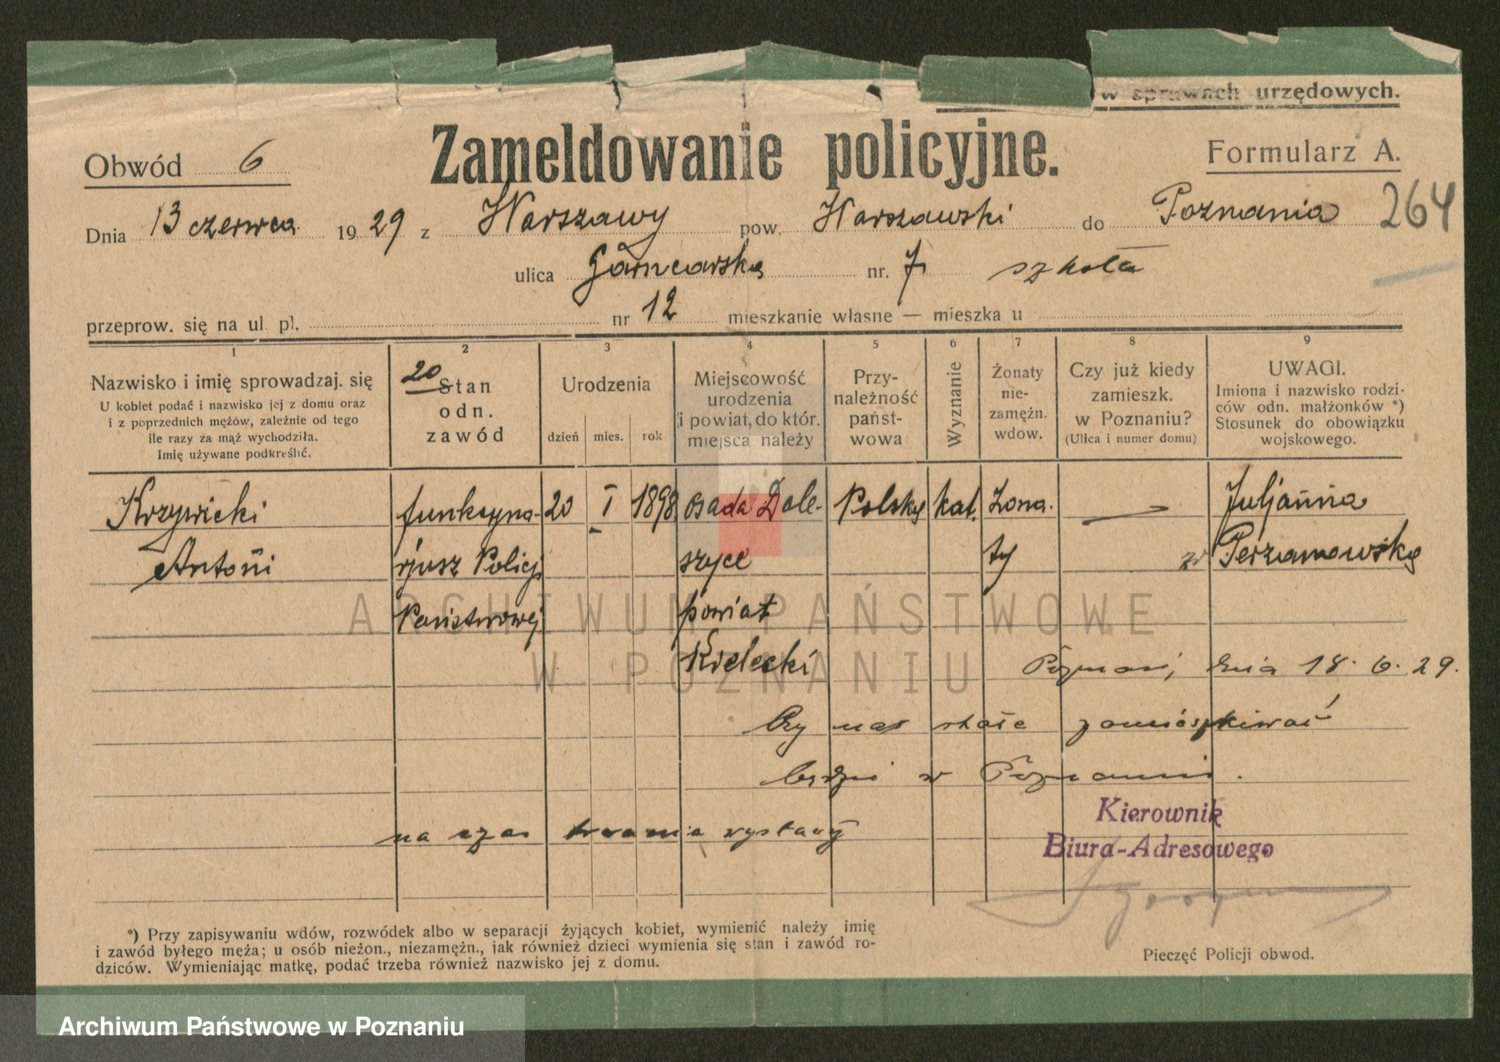 w sprawach urzędowych.
Obwód 6 Zameldowanie policyjne. Formularz A.
Dnia 13 czerwca 1929 z Warszawy pow. Warszawski do Poznania 264
ulica Garncarska nr. 7 szkoła
przeprow. się na ul. pl. nr 12 mieszkanie własne — mieszka u
1 2 3 4 5 6 7 8 9
Nazwisko i imię sprowadzaj. się
U kobiet podać i nazwisko jej z domu oraz
i z poprzednich mężów, zależnie od tego
ile razy za mąż wychodziła.
Imię używane podkreślić.
20
Stan
odn.
zawód
Urodzenia
dzień mies. rok
Miejscowość
urodzenia
i powiat, do któr.
miejsca należy
Przy-
należność
państ-
wowa
Wyznanie
Żonaty
nie-
zamężn.
wdow.
Czy już kiedy
zamieszk.
w Poznaniu?
(Ulica i numer domu)
UWAGI.
Imiona i nazwisko rodzi-
ców odn. małżonków *)
Stosunek do obowiązku
wojskowego.
Krzywicki funkcyona- 20 I 1898 osada Dale- Polska kat. żona- — Juljanna
Antoni rjusz Policji szyce ty zd Perzanowska
Państwowej powiat
Kielecki Poznań, dnia 18.6.29.
Czy na stałe zamieszkiwać
będzie w Poznaniu.
na czas trwania wystawy
Kierownik
Biura-Adresowego
*) Przy zapisywaniu wdów, rozwódek albo w separacji żyjących kobiet, wymienić należy imię
i zawód byłego męża; u osób nieżon., niezamężn., jak również dzieci wymienia się stan i zawód ro-
dziców. Wymieniając matkę, podać trzeba również nazwisko jej z domu.
Pieczęć Policji obwod.
ARCHIWUM PAŃSTWOWE
W POZNANIU
Archiwum Państwowe w Poznaniu